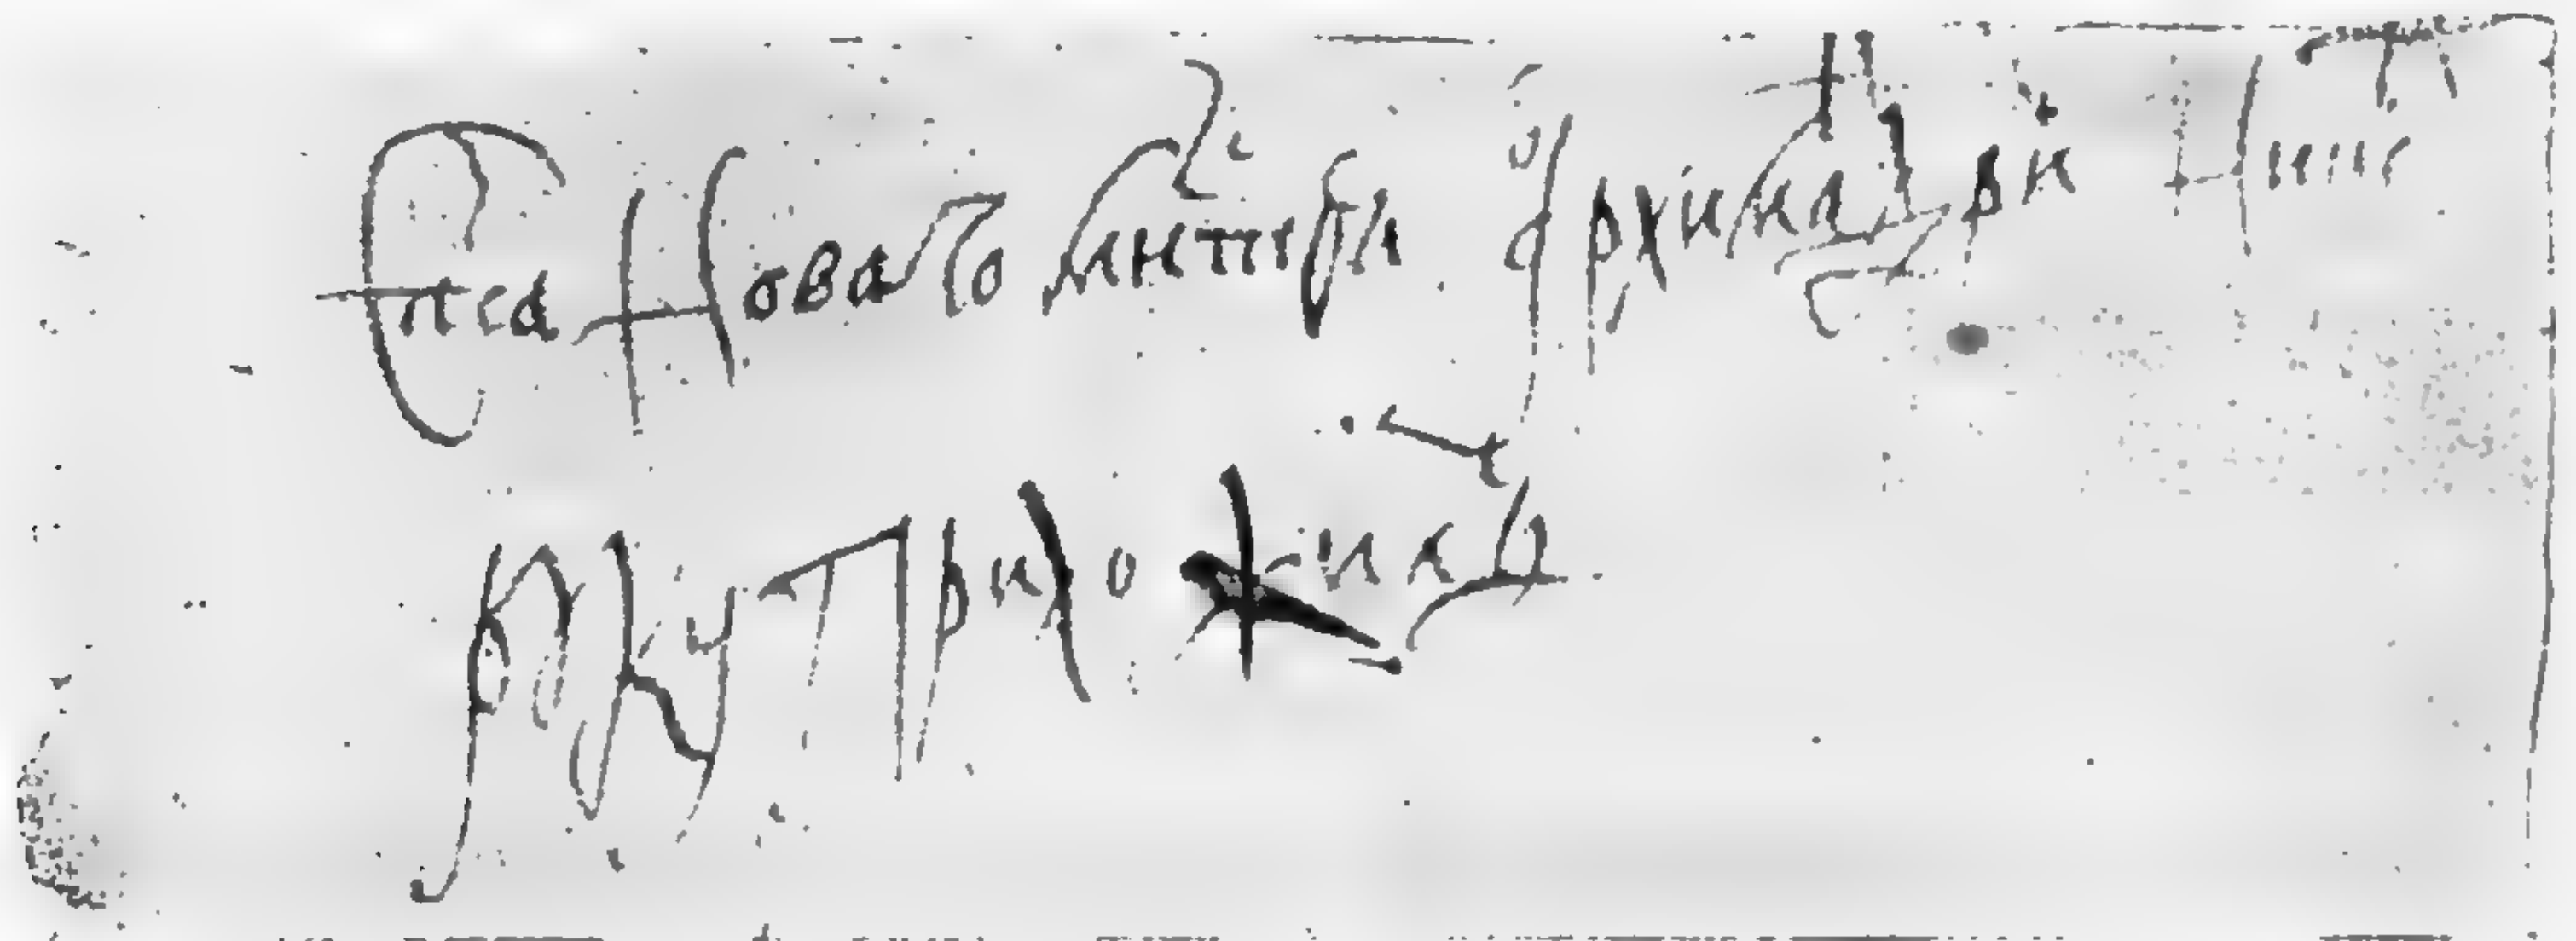 Спса Новаго мнтрѧ Архимадри
руку Приложилъ